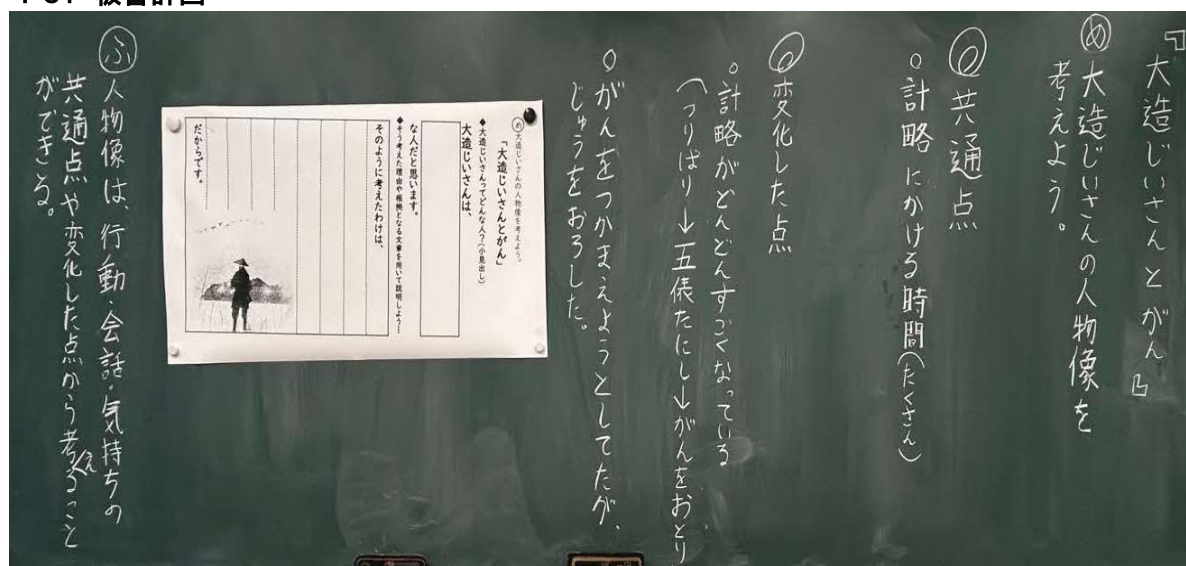 『大造じいさんとがん』
め 大造じいさんの人物像を
考えよう。
共通点
○計略にかける時間(たくさん)
変化した点
○計略がどんどんすごくなっている
(つりばり→五俵たにし→がんをおとり
○がんをつかまえようとしてたが、
じゅうをおろした。
め大造じいさんの人物像を考えよう。
「大造じいさんとがん」
◆大造じいさんってどんな人?(小見出し)
大造じいさんは、
な人だと思います。
◆そう考えた理由や根拠となる文章を用いて説明しよう!
そのように考えたわけは、
だからです。
ふ 人物像は、行動・会話・気持ちの
共通点や変化した点から考えること
ができる。